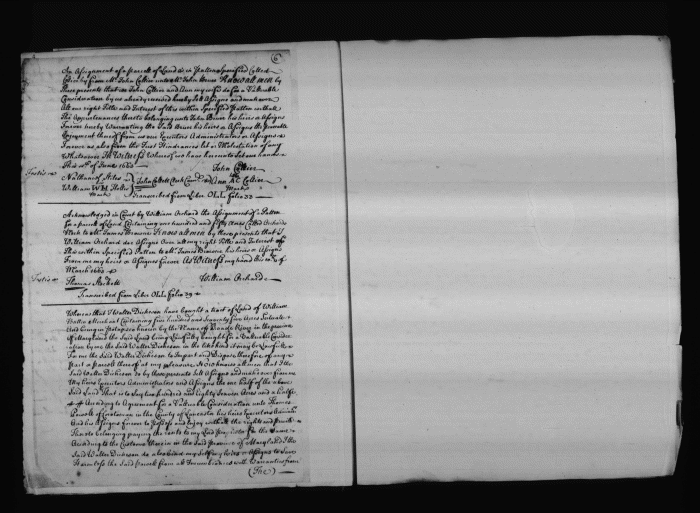 6
An Assignment of a parcell of Land &c in Patton Specified Called
from Mr John Collier unto Mr John Bruer Know all men by
These presents that we John Collier and Ann my wife do for a Valluable
Consideration by us already received hereby Sell Assigne and make over
All our right Title and Interest of this within Specified Patton with all
The Appurtenances thereto belonging unto John Bruer his heirs or Assigns
Forever hereby Warranting the Said Bruer his heirs or Assignes the Peaceable
Enjoyment thereof from us our Executors Administrators or Assignes
Forever as also from the Just Hindrances Let or Molestation of any
Whatsoever In Witness Whereof we have hereunto Set our hands
This of June 1662
Testis John Collier
Nathaniell Stiles John Collett Clerk Ann AC Collier
William WH Hollis Mark
Mark Transcribed from Liber Old folio 33
Acknowledged in Court by William Orchard the Assignment of a Patton
for a parcell of Land Containing one hundred and fifty Acres Called Orchards
Neck to Mr James Browne Know all men by these presents that I
William Orchard do Assigne Over all my right Title and Interest of
This within Specified Patton to Mr James Browne his heirs or Assigns
From me my heirs or Assignes forever As Witness my hand this of
March 1662
Testis William Orchard
Thomas Hackett
Transcribed from Liber Old folio 29
Whereas that I Walter Dickeson have bought a tract of Land of William
Ballie Merchant Containing five hundred and Seventy five Acres Scituate
And being in Potapsco known by the Name of in the province
of Maryland the Said Land being Lawfully bought for a Valluable Consider
ation by me the Said Walter Dickeson in the Like kind it may be Lawfull
For me the Said Walter Dickeson to Impart and Dispose thereof or any
Part or parcell thereof at my pleasure Now know all men that I the
Said Walter Dickeson do by these presents Sell Assigne and make over from me
My heirs Executors Administrators and Assignes the one half of the above
Said Land That is to Say two hundred and Eighty Seaven Acres and a halfe
According to Agreement for a Valluable Consideration unto Thomas
Powell of in the County of Lancaster his heirs Executors Administ
And his Assignes forever to Possess and Enjoy with all the rights and priviledges
Thereto belonging paying the rents to my Lord for the Same
According to the Customs therein in the Said Province of Maryland I the
Said Walter Dickeson do also bind my Selfe my heirs or Assignes to Save
Harmless the Said Powell from all Incumbrances with Warranties from
(The)